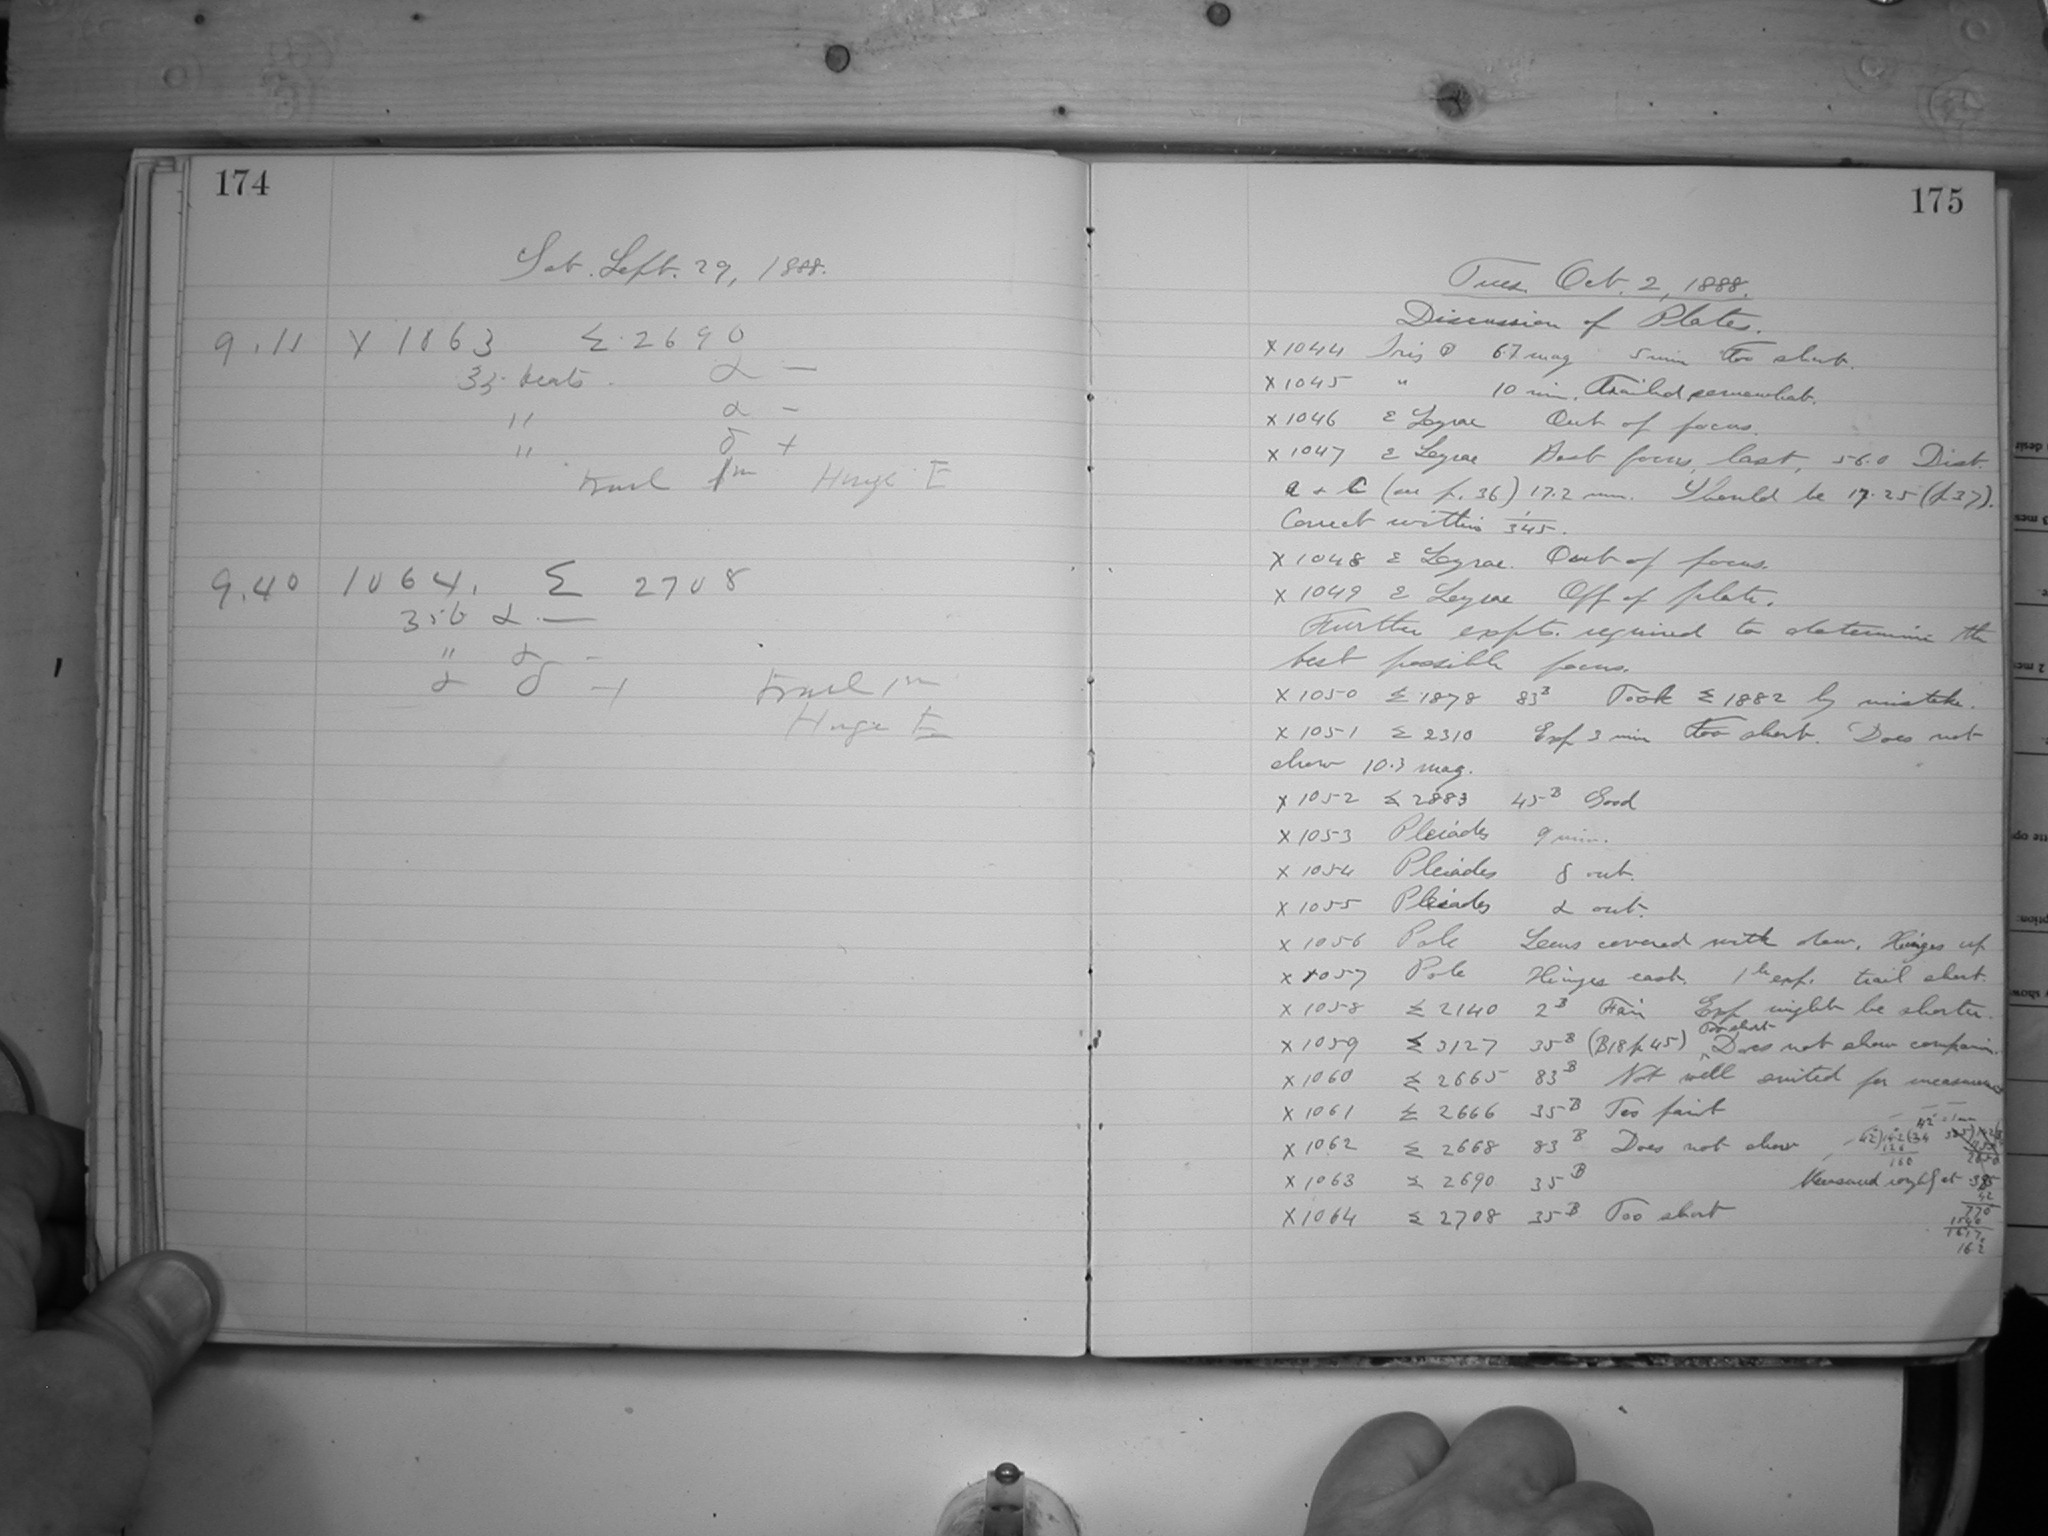 174
Sat. Sept. 29, 1888.
9.11 X 1063 Σ 2690
35 beats. α —
" α -
" δ +
trail 1m Hinge E
9.40 1064. Σ 2708
35b α —
" α -
δ
trail 1m
Hinge E
175
Tues. Oct. 2, 1888.
Discussion of Plates.
X 1044 Iris 6.7 mag 5 min too short.
X 1045 " 10 min. Trailed somewhat.
X 1046 ε Lyrae Out of focus.
X 1047 ε Lyrae Best focus, last, 56.0 Dist.
a + c (see p. 36) 17.2 mm. Should be 17.25 (p 37).
Correct within 1/345.
X 1048 ε Lyrae. Out of focus.
X 1049 ε Lyrae Off of plate.
Further expts. required to determine the
best possible focus.
X 1050 Σ 1878 83B Took Σ 1882 by mistake.
X 1051 Σ 2310 Exp 3 min too short. Does not
show 10.3 mag.
X 1052 Σ 2883 45B Good
X 1053 Pleiades 9 min.
X 1054 Pleiades δ out.
X 1055 Pleiades α out.
X 1056 Pole Lens covered with dew. Hinges up
X 1057 Pole Hinges east. 1h exp. trail short.
X 1058 Σ 2140 2B Fair Exp might be shorter.
X 1059 Σ 3127 35B (B18 p 45) Too short Does not show compan.
X 1060 Σ 2665 83B Not well suited for measurem
X 1061 Σ 2666 35B Too faint
X 1062 Σ 2668 83B Does not show
X 1063 Σ 2690 35B Measured roughly at 385
X 1064 Σ 2708 35B Too short
42
770
1540
1617
16.2